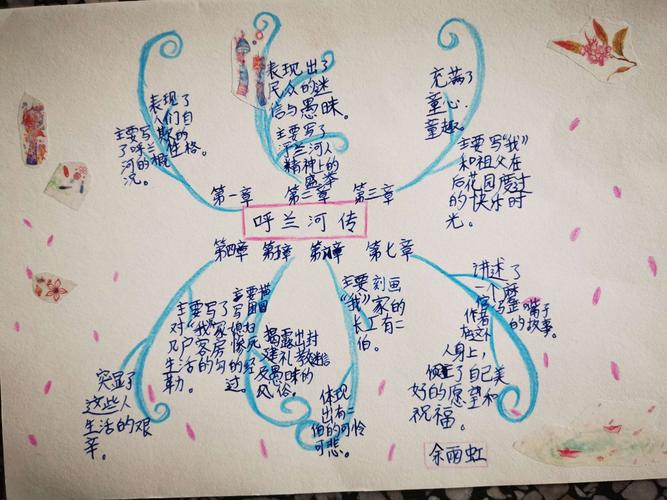 表现了
人们自
欺的
性格。
主要写
了呼兰
河的概
况。
第一章
表现出了
民众的迷
信与愚昧。
主要写了
呼兰河人
精神上的
盛举
第二章
充满了
童心
童趣。
主要写“我”
和祖父在
后花园度过
的快乐时
光。
第三章
呼兰河传
第四章
主要写了
对“我”家
几户客房
生活的勾
勒。
突显了
这些人
生活的艰
辛。
第五章
主要描
写团圆
媳妇
惨死
的经
过。
揭露出封
建礼教
及愚昧的
风俗,
第六章
主要刻画
“我”家的
长工有二
伯。
体现
出有二
伯的可怜
可悲。
第七章
讲述了
一个磨
倌冯歪嘴子
的故事。
作者
在这个
人身上,
倾注了自己美
好的愿望和
祝福。
余雨虹